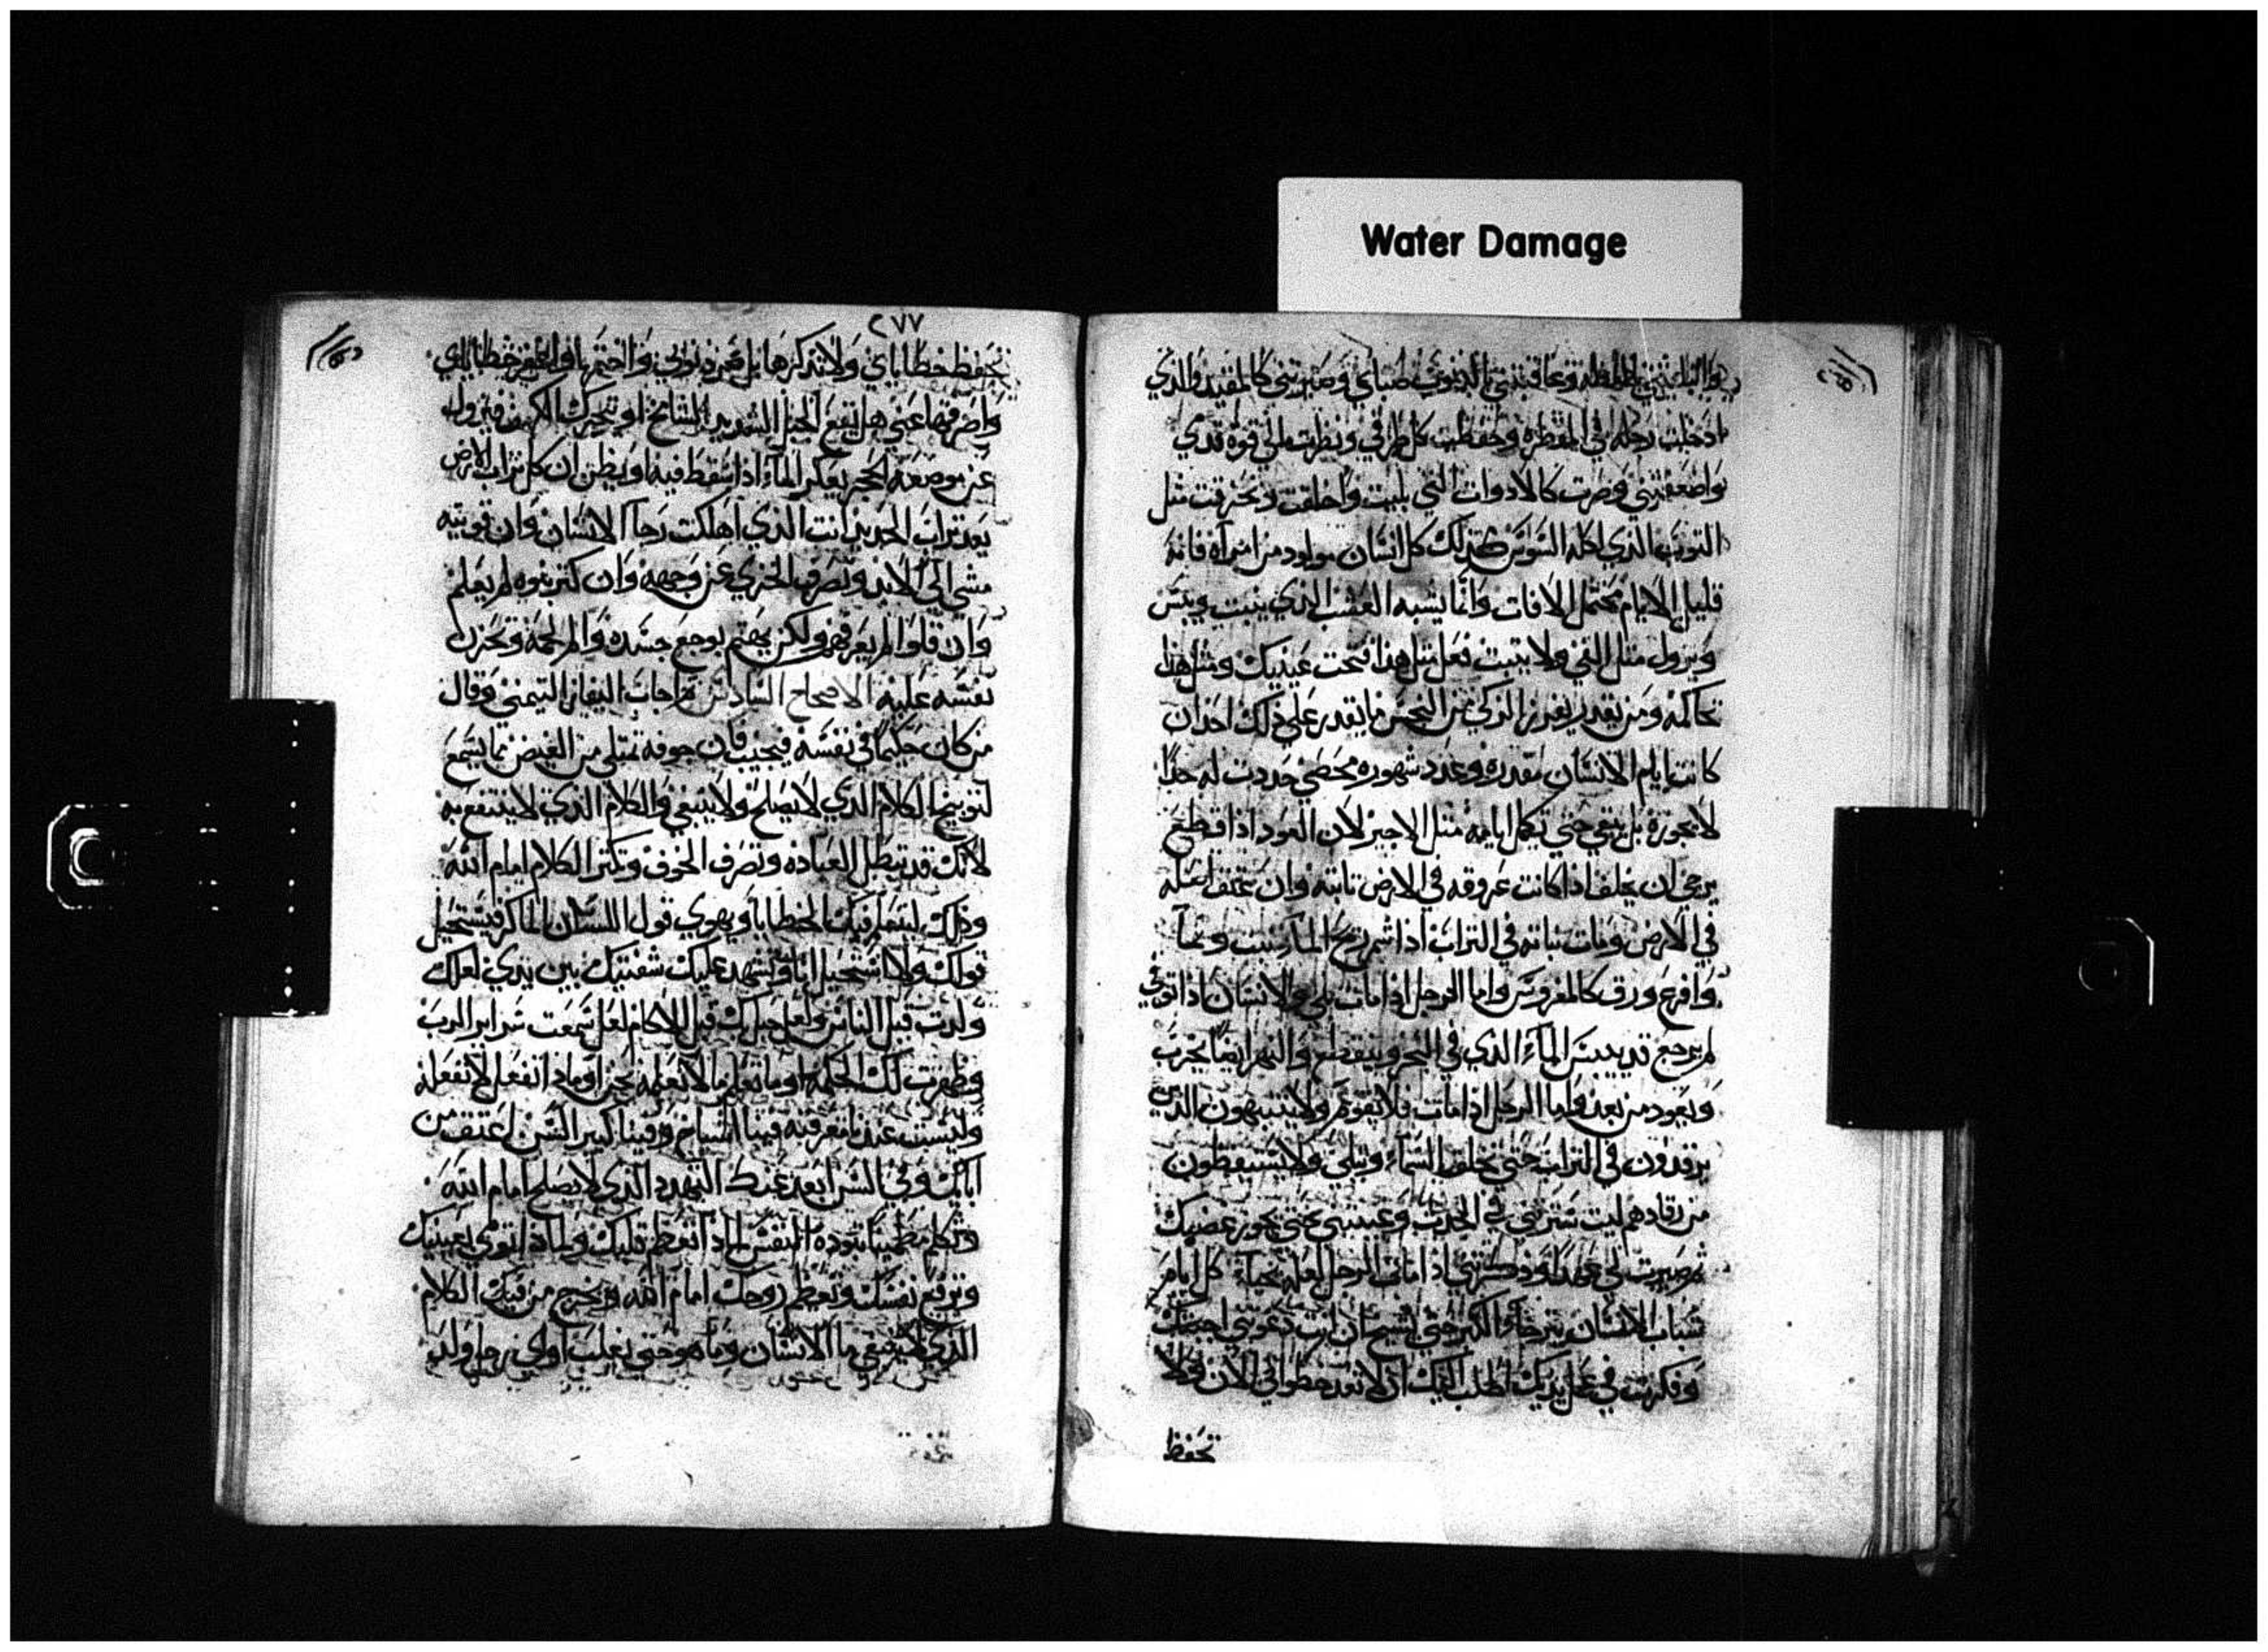 Water Damage
ادخلت رجله في المقطره وحفظت كل طرقي ونظرت الى قوة قدمي
واضعفتني وصرت كالادوات التي بليت واخلقت وتخرقت مثل
الثوب الذي اكله السوس كذلك كل انسان مولود من امرأه فانه
قليل الايام محتمل الافات وانما يشبه العشب الذي ينبت ويبس
ويزول مثل الفي ولا يثبت فعل مثل هذا فتحت عينيك ومثل هذا
تحاكمه ومن يقدر يفرز الزكي من النجس ما يقدر على ذلك احد ان
كانت ايام الانسان مقدره وعدد شهوره محصي حددت له حدا
لا يجوزه بل يبقي حتي تكمل ايامه مثل الاجير لان العود اذا قطع
يرجي ان يخلف اذا كانت عروقه في الارض ثابته وان عتق اصله
في الارض ومات نباته في التراب اذا شم ريح الماء ينبت ونما
وافرع ورق كالمغروس واما الرجل اذا مات بلي والانسان اذا توفي
لم يرجع قد ييبس الماء الذي في البحر وينقطع والنهر ايضا يخرب
ويعود من بعد واما الرجل اذا مات فلا يقوم ولا ينتبهون الذين
يرقدون في التراب حتي تخلق السماء وتبلي ولا يستيقظون
من رقادهم ليت سترتني في الجدث وغيبتني حتي يجوز غضبك
ثم صيرت لي عهدا وذكرتني اذا مات الرجل لعله يحيا كل ايام
شباب الانسان يترجاء الكبر حتي اشيخ ان انت دعوتني اجبتك
وفكرت في عمل يديك اطلب اليك ان لا تعد خطواتي الان ولا
تحفظ
٢٧٧
تحفظ خطاياي ولا تذكرها بل
واصرفها عني هل يقع الجبل الشديد الشامخ او تتحرك الكهف فيزول
عن موضعه الحجر يعكر الماء اذا سقط فيه او يظن ان كل تراب الارض
يعد تراب الحديد انت الذي اهلكت رجا الانسان وان قويته
مشي الي الابد وتصرف الخزي عن وجهه وان كثر بنوه لم يعلم
وان قلوا لم يعرفهم ولكن يهتم بوجع جسده والم لحمه وتحزن
نفسه عليه الاصحاح السادس اجاب اليفاز التيمني وقال
من كان حكيما في نفسه فيجيب فان جوفه تمتلي من الغيض مما يسمع
لتوبيخ الكلام الذي لا يصلح ولا ينبغي والكلام الذي لا ينتفع به
لانك قد تبطل العباده وتصرف الخوف وتكثر الكلام امام الله
وذلك لتعلم فيك الخطايا ويهوي قول اللسان الماكر فيستحيل
قولك ولا استحيل انا وتشهد عليك شفتيك بين يدي لعلك
ولدت قبل الناس ولعل حبل بك قبل الاكام لعل سمعت سراير الرب
وظهرت لك الحكمه او ما تعلم ما لا نعلمه نحن او ماذا تفعل لا نفعله
وليست عندنا معرفته فينا الشياخ وفينا كبير السن اعتق من
اباك وفي السن ابعد عنك التهدد الذي لا يصلح امام الله
وتكلم مطمينا بتوده النفس لماذا تعظم قلبك ولماذا تومي بعينيك
وترفع نفسك وتعظم روحك امام الله وتخرج من فيك الكلام
الذي لا ينبغي ما الانسان وما هو حتي يغلب او اي رجل ولد